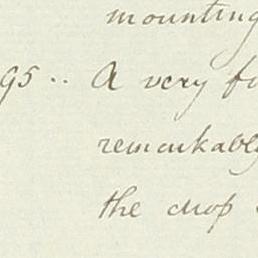 mounting
95 .. A very fi
remarkably
the drop